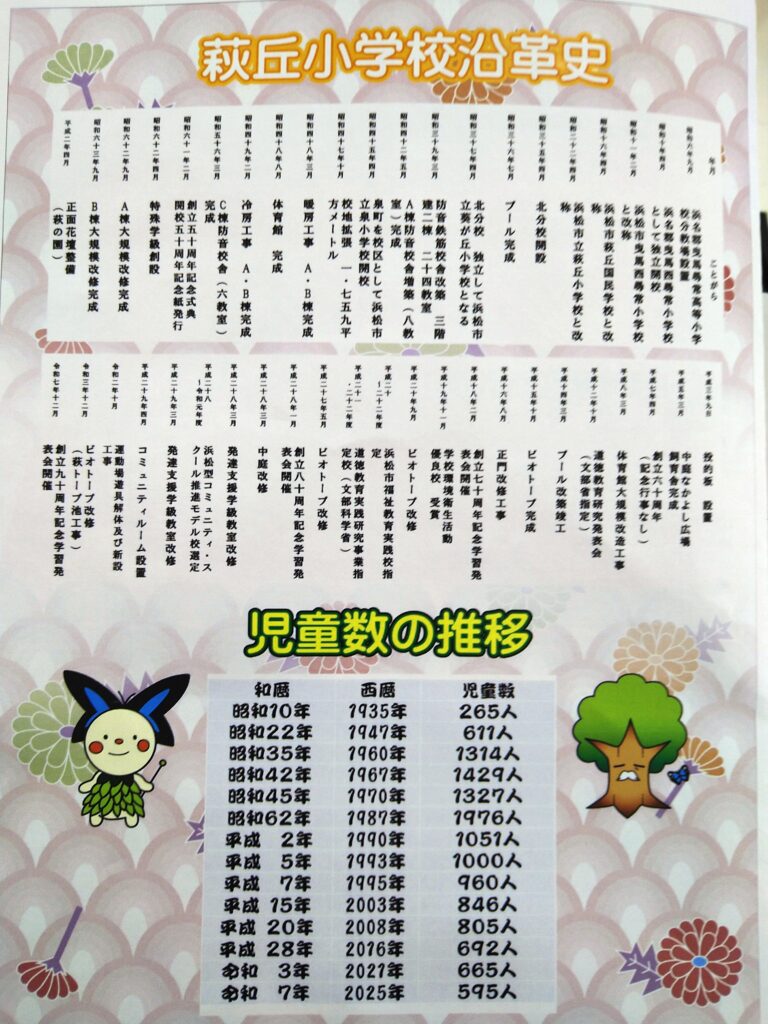 萩丘小学校沿革史
年月
ことがら
昭和六年九月
浜名郡曳馬尋常高等小学
校分教場設置
昭和十年四月
浜名郡曳馬西尋常小学校
として独立開校
昭和十一年二月
浜松市曳馬西尋常小学校
と改称
昭和十六年四月
浜松市萩丘国民学校と改
称
昭和二十二年四月
浜松市立萩丘小学校と改
称
昭和三十五年四月
北分校開設
昭和三十六年七月
プール完成
昭和三十七年
北分校 独立して浜松市
立葵が丘小学校となる
昭和三十九年三月
防音鉄筋校舎改築 三階
建二棟 二十四教室
昭和四十二年五月
A棟防音校舎増築(八教
室)完成
昭和四十五年四月
泉町を校区として浜松市
立泉小学校開校
昭和四十七年十月
校地拡張 一・七五九平
方メートル
昭和四十八年三月
暖房工事 A・B棟完成
昭和四十八年八月
体育館 完成
昭和四十九年二月
冷房工事 A・B棟完成
昭和五十六年三月
C棟防音校舎(六教室)
完成
昭和六十一年二月
創立五十周年記念式典
開校五十周年記念紙発行
昭和六十二年四月
特殊学級創設
昭和六十二年九月
A棟大規模改修完成
昭和六十三年九月
B棟大規模改修完成
平成二年四月
正面花壇整備
(萩の園)
投的板 設置
平成五年三月
中庭なかよし広場
飼育舎完成
平成七年四月
創立六十周年
(記念行事なし)
平成八年三月
体育館大規模改造工事
平成十二年十月
道徳教育研究発表会
(文部省指定)
平成十四年三月
プール改築竣工
平成十五年十月
ビオトープ完成
平成十六年八月
正門改修工事
平成十八年二月
創立七十周年記念学習発
表会開催
平成十九年十一月
学校環境衛生活動
優良校 受賞
平成二十年九月
ビオトープ改修
平成二十
~二十二年度
浜松市福祉教育実践校指
定
平成二十一
・二十二年度
道徳教育実践研究事業指
定校(文部科学省)
平成二十七年五月
ビオトープ改修
平成二十八年一月
創立八十周年記念学習発
表会開催
平成二十八年三月
中庭改修
平成二十八年三月
発達支援学級教室改修
平成二十八
~令和元年度
浜松型コミュニティ・ス
クール推進モデル校選定
平成二十九年三月
発達支援学級教室改修
平成二十九年四月
コミュニティルーム設置
令和二年十月
運動場遊具解体及び新設
工事
令和三年十二月
ビオトープ改修
(萩トープ池工事)
令和七年十二月
創立九十周年記念学習発
表会開催
児童数の推移
和暦 西暦 児童数
昭和10年 1935年 265人
昭和22年 1947年 611人
昭和35年 1960年 1314人
昭和42年 1967年 1429人
昭和45年 1970年 1327人
昭和62年 1987年 1976人
平成 2年 1990年 1051人
平成 5年 1993年 1000人
平成 7年 1995年 960人
平成 15年 2003年 846人
平成 20年 2008年 805人
平成 28年 2016年 692人
令和 3年 2021年 665人
令和 7年 2025年 595人